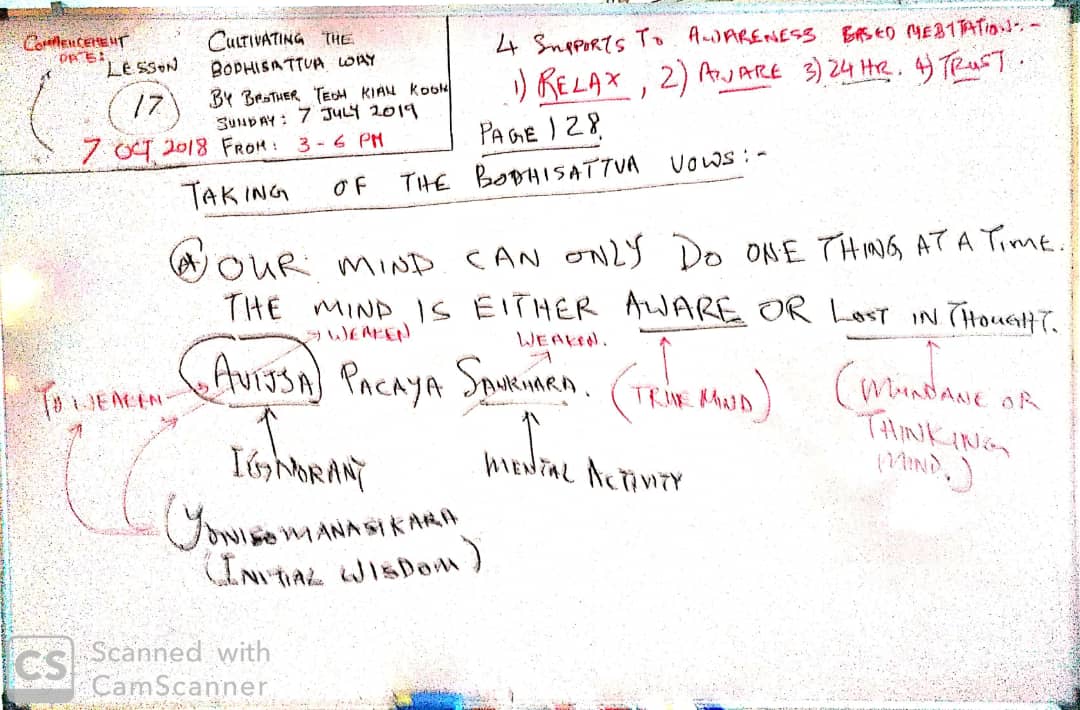 COMMENCEMENT
DATE:
LESSON
17
7 OCT 2018
CULTIVATING THE
BODHISATTVA WAY
BY BROTHER TEOH KIAN KOON
SUNDAY: 7 JULY 2019
FROM: 3-6 PM
4 SUPPORTS TO AWARENESS BASED MEDITATION:-
1) RELAX, 2) AWARE 3) 24 HR. 4) TRUST.
PAGE 128.
TAKING OF THE BODHISATTVA VOWS:-
(A) OUR MIND CAN ONLY DO ONE THING AT A TIME.
THE MIND IS EITHER AWARE OR LOST IN THOUGHT.
WEAKEN WEAKEN.
TO WEAKEN (AVIJJA) PACAYA SANKHARA. (TRUE MIND) (MUNDANE OR
THINKING
MIND.)
IGNORANT MENTAL ACTIVITY
(YONISOMANASIKARA
(INITIAL WISDOM)
CS Scanned with
CamScanner